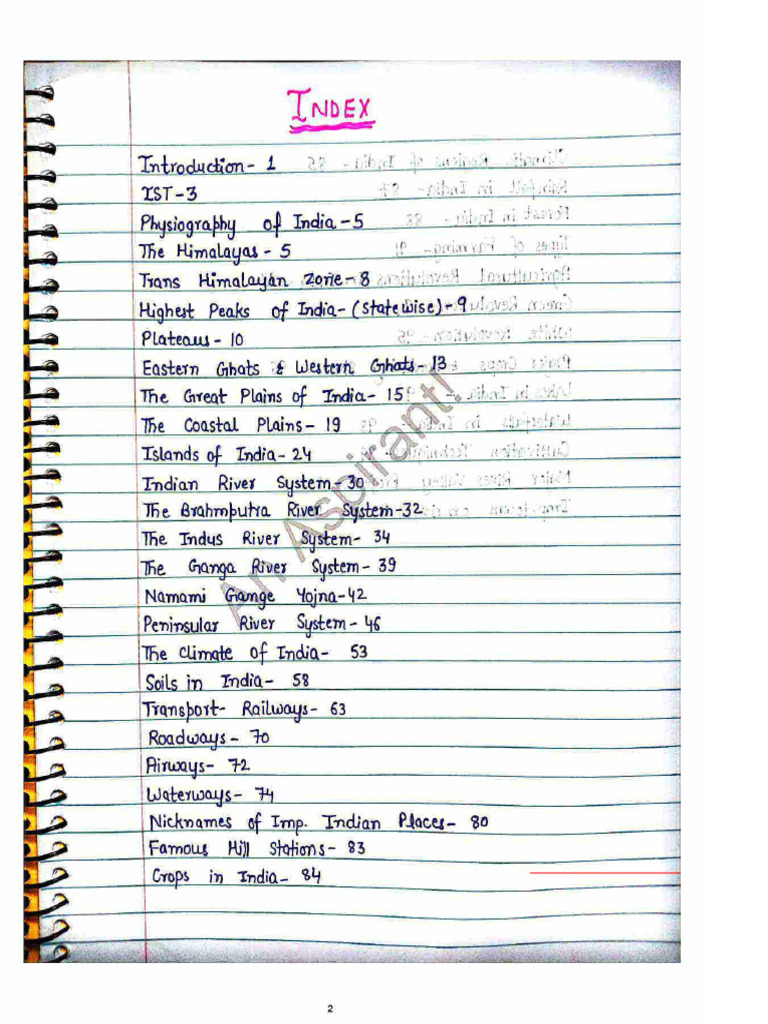 INDEX
Introduction - 1
IST - 3
Physiography of India - 5
The Himalayas - 5
Trans Himalayan Zone - 8
Highest Peaks of India - (Statewise) - 9
Plateaus - 10
Eastern Ghats & Western Ghats - 13
The Great Plains of India - 15
The Coastal Plains - 19
Islands of India - 24
Indian River System - 30
The Brahmputra River System - 32
The Indus River System - 34
The Ganga River System - 39
Namami Gange Yojna - 42
Peninsular River System - 46
The Climate of India - 53
Soils in India - 58
Transport - Railways - 63
Roadways - 70
Airways - 72
Waterways - 74
Nicknames of Imp. Indian Places - 80
Famous Hill Stations - 83
Crops in India - 84
An Aspirant!
2